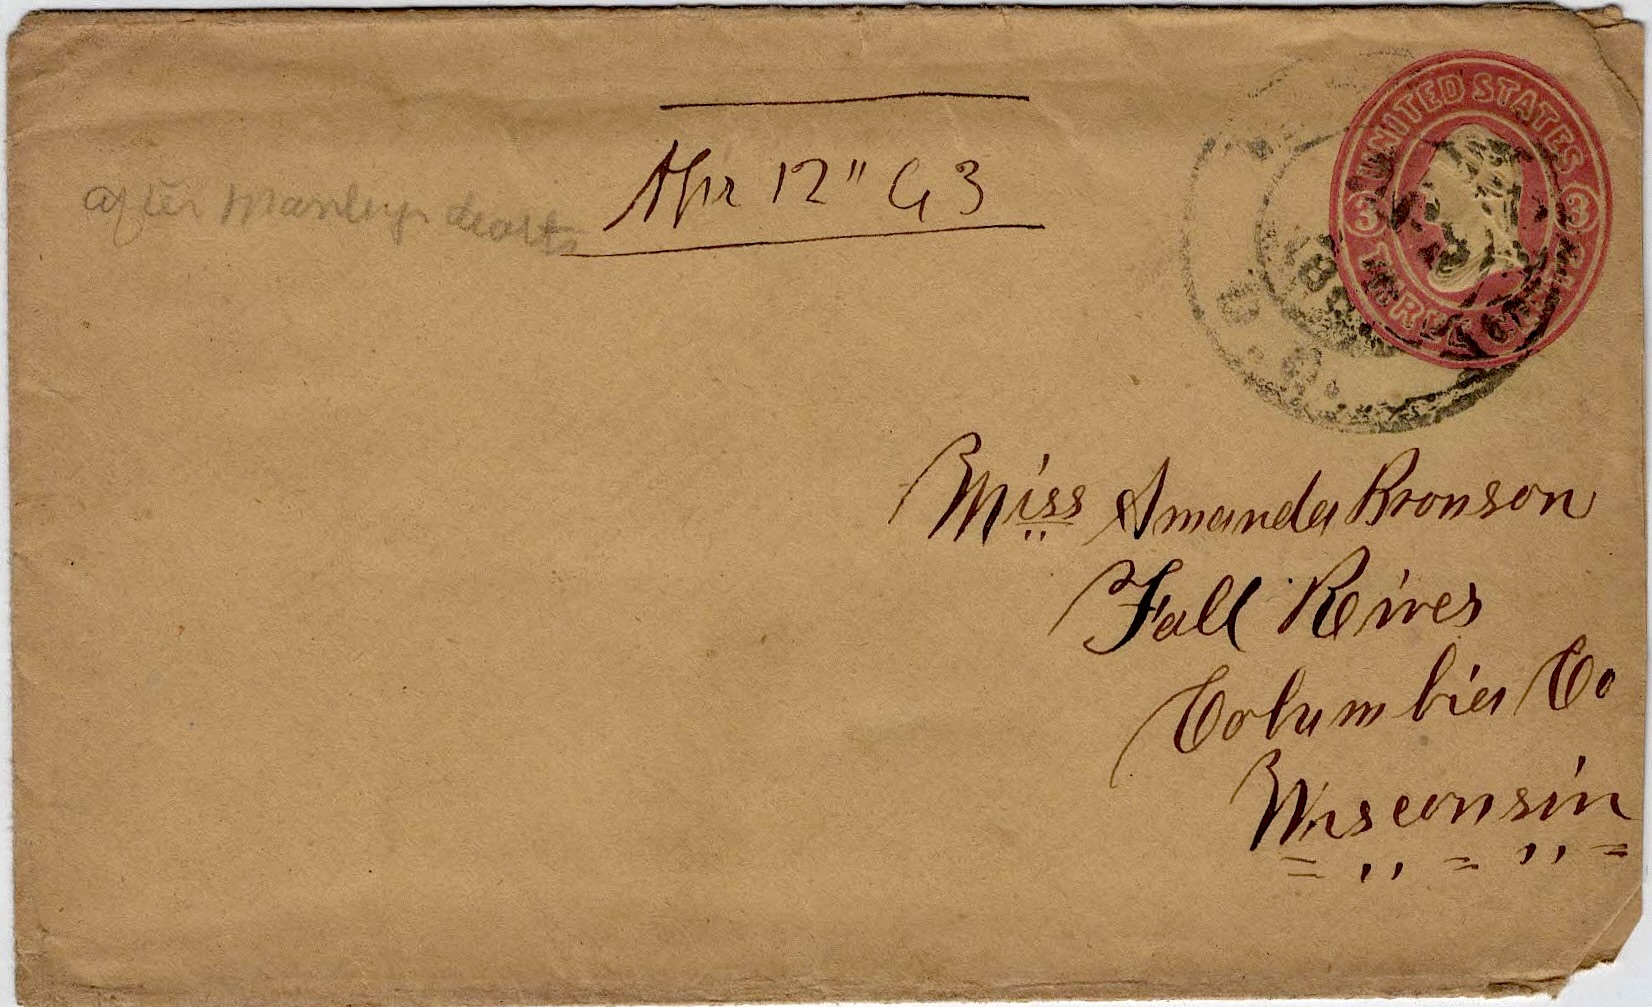 UNITED STATES
3 3
THREE CENTS
Apr 12" 63
after Manleys death
Miss Amanda Bronson
Fall River
Columbia Co
Wisconsin